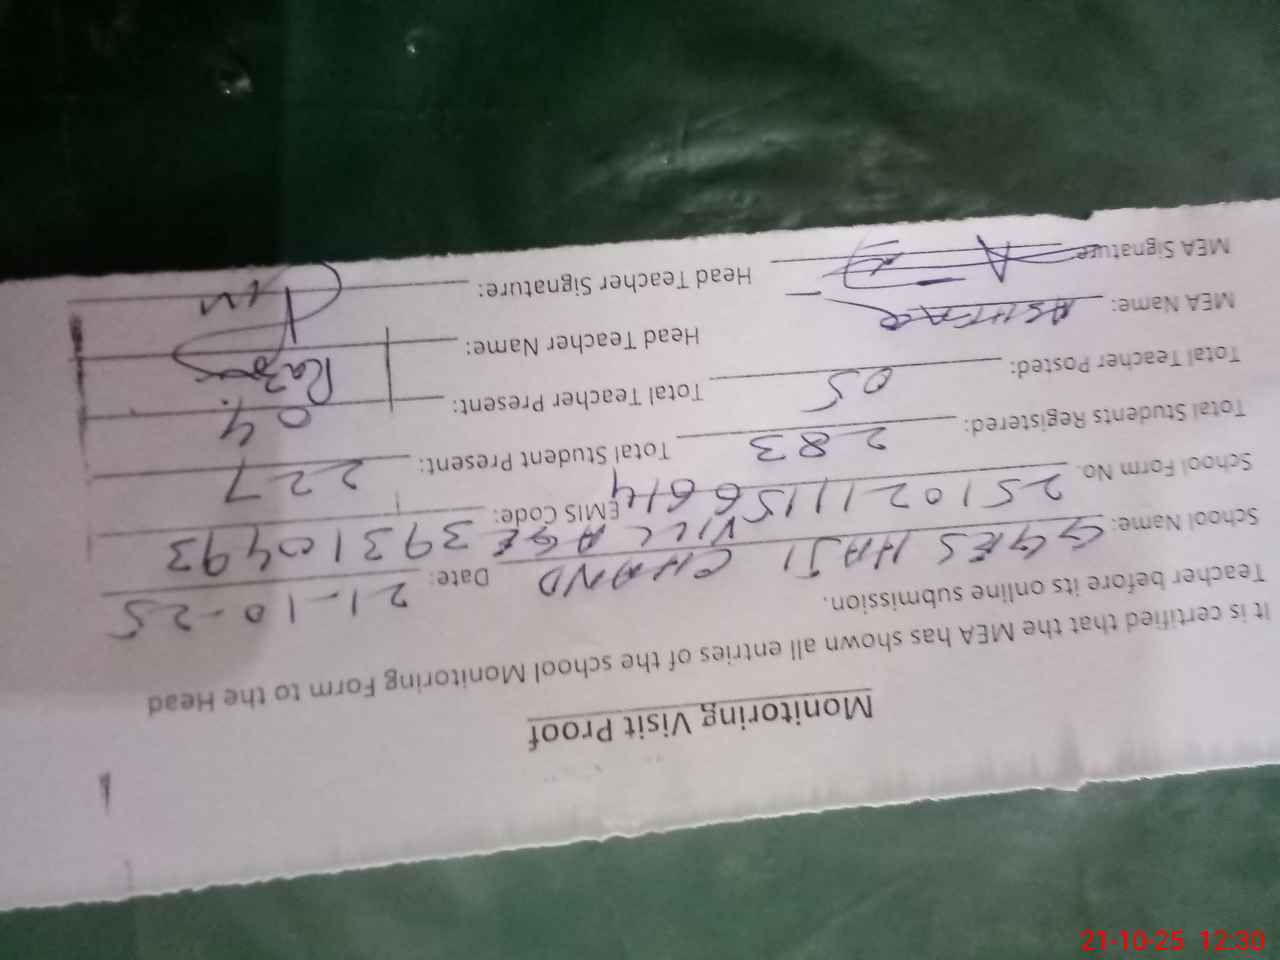 Monitoring Visit Proof
It is certified that the MEA has shown all entries of the school Monitoring Form to the Head
Teacher before its online submission.
School Name: GGES HAJI CHAND VILLAGE Date: 21-10-25
School Form No. 2510211156614 EMIS Code: 39310493
Total Students Registered: 283 Total Student Present: 227
Total Teacher Posted: 05 Total Teacher Present: 04
MEA Name: ASHFAQ Head Teacher Name:
MEA Signature Head Teacher Signature:
21-10-25 12:30